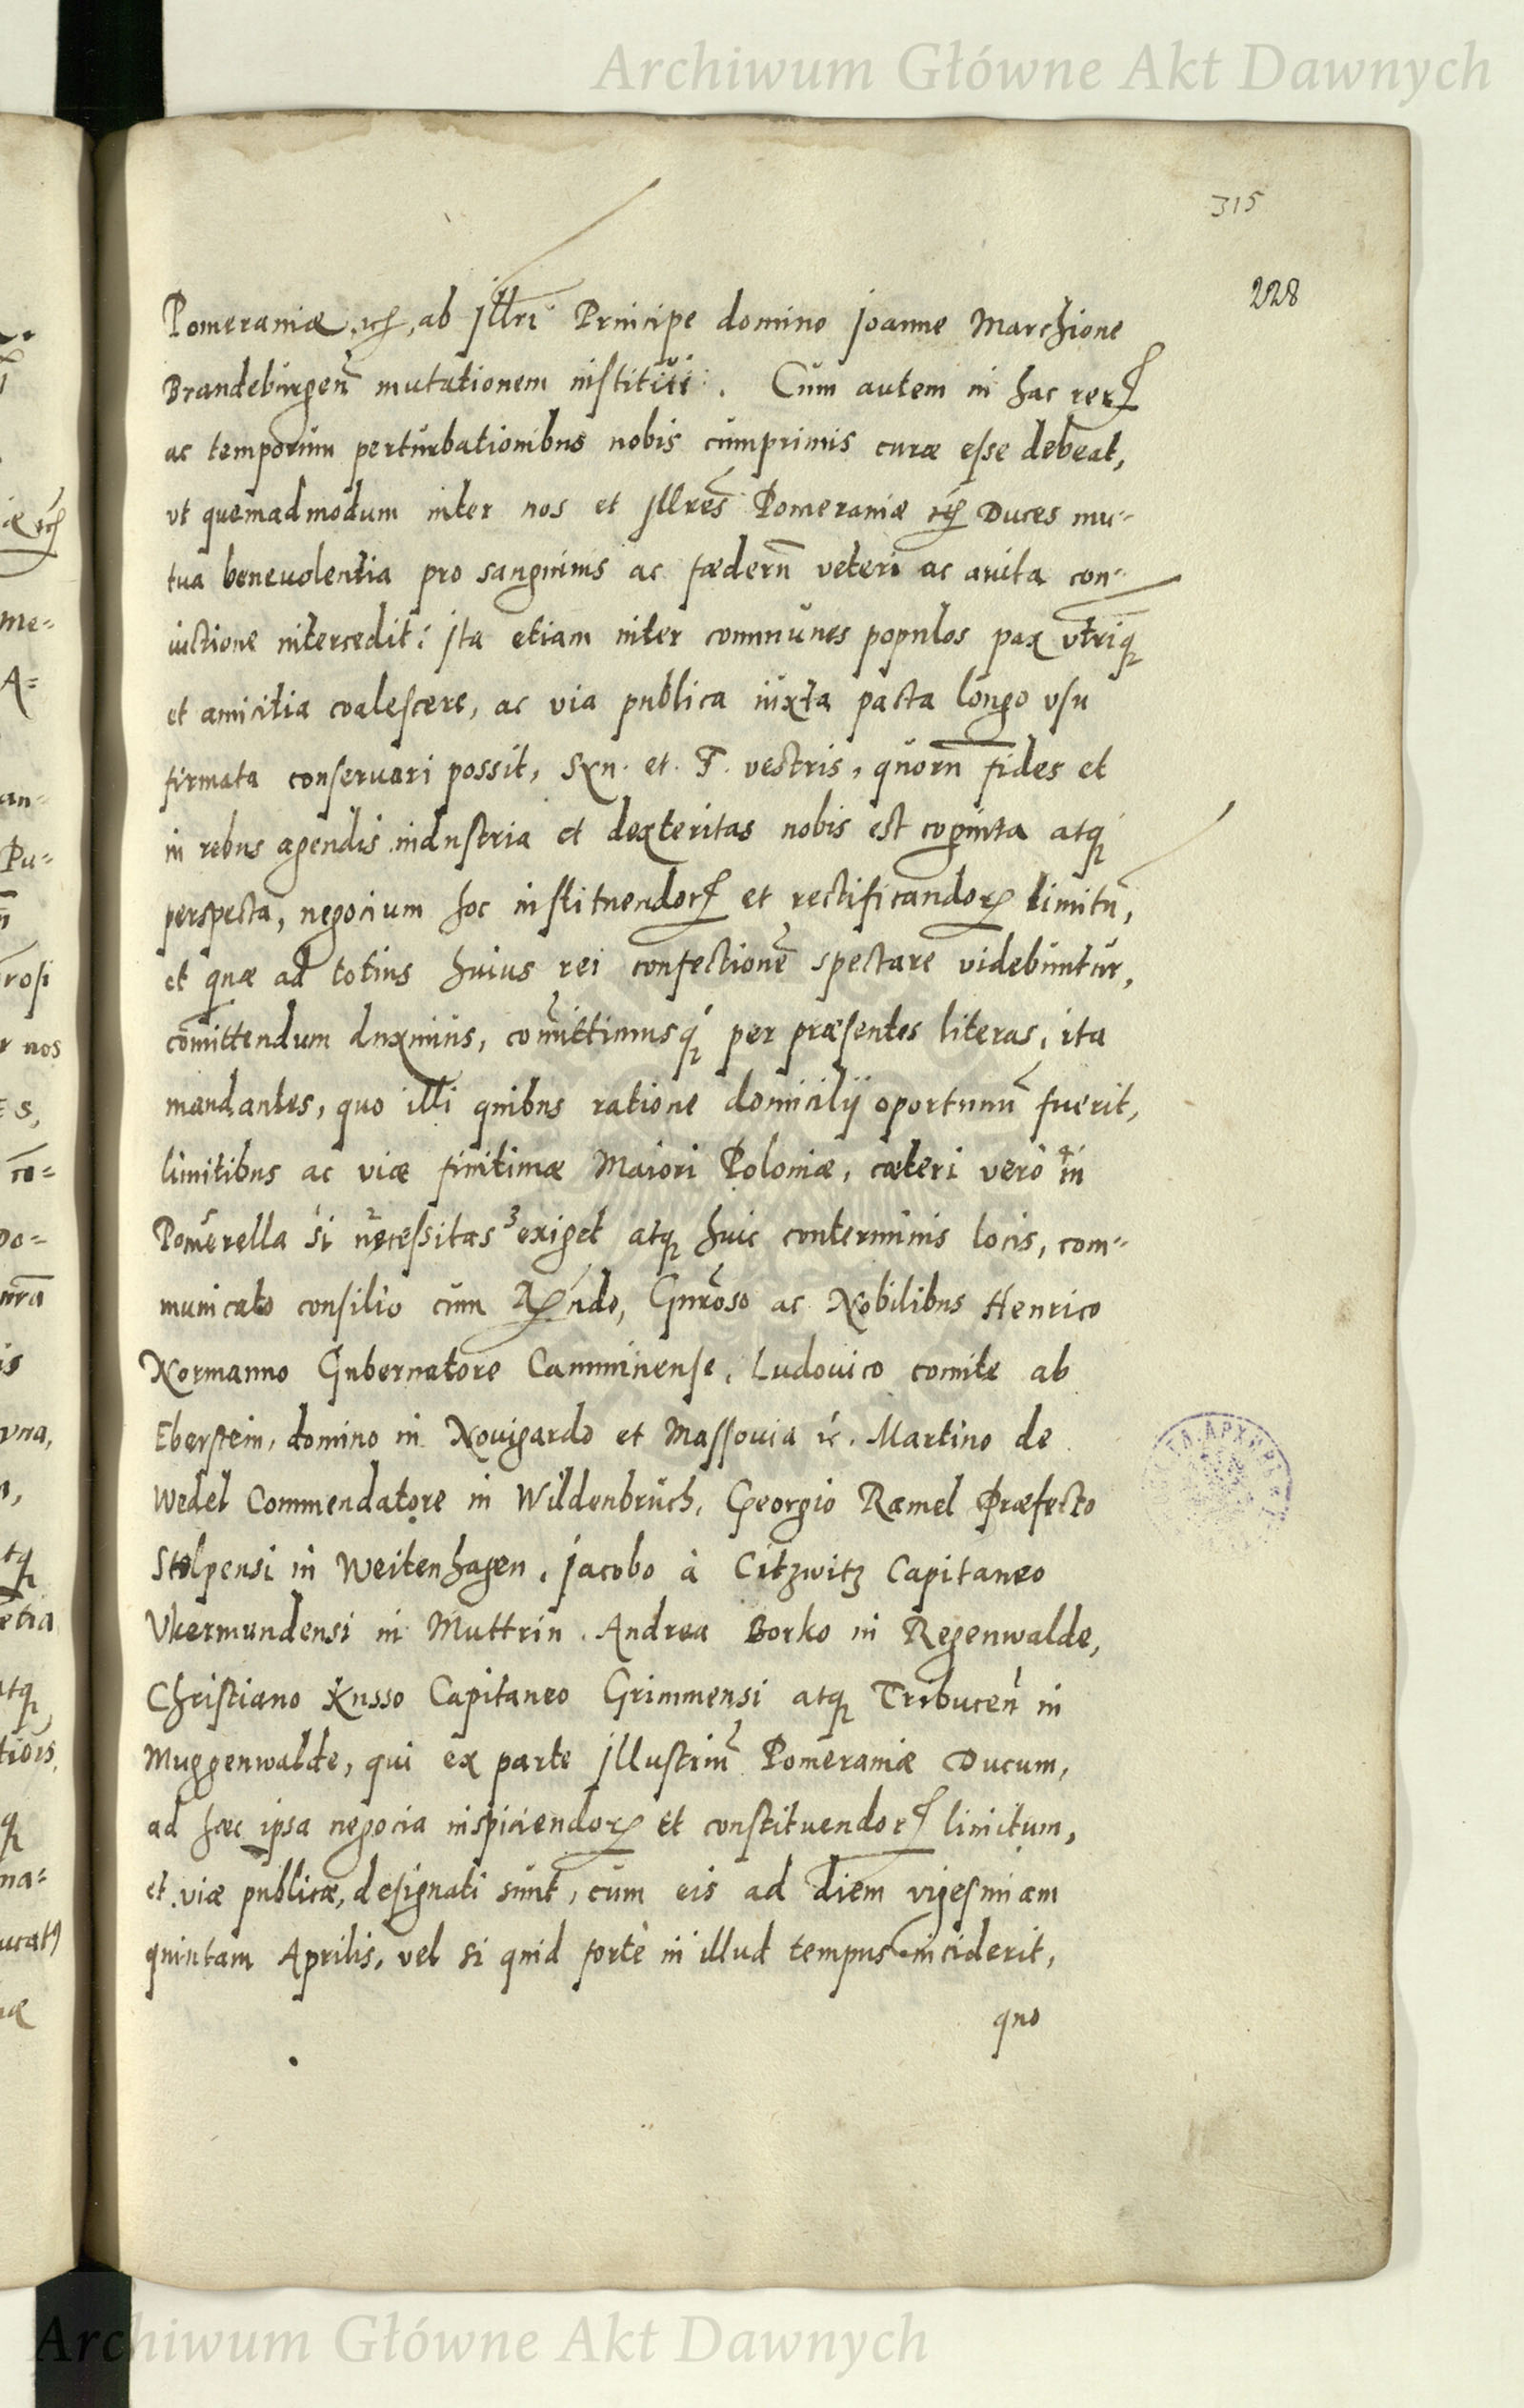 Archiwum Główne Akt Dawnych
315
228
Pomeraniæ etc, ab Jllri Principe domino Joanne Marchione
Brandeburgeñ mutationem institui. Cum autem in hac rerꝝ
ac temporum perturbationibus nobis cumprimis curæ esse debeat,
vt quemadmodum inter nos et Jllres Pomeraniæ etc Duces mu-
tua beneuolentia pro sanguinis ac fœderũ veteri ac auita con-
iuctione intercedit: Jta etiam inter communes populos pax vtrinq
et amicitia coalescere, ac via publica iuxta pacta longo vsu
firmata conseruari possit, Sxn. et. F. vestris, quorũ fides et
in rebus agendis industria et dexteritas nobis est cognita atq
perspecta, negocium hoc instituendorꝝ et rectificandorꝝ limitũ,
et quæ ad totius huius rei confectionẽ spectare videbuntur,
com̃ittendum duximus, com̃ittimusq per præsentes literas, ita
mandantes, quo illi quibus ratione domicilij oportunũ fuerit,
limitibus ac viæ finitimæ Maiori Poloniæ, cæteri verò 4 in
5 Pomerella si 2 necessitas 3 exiget atq huic conterminis locis, com-
municato consilio cum Rndo, Gnroso ac Nobilibus Henrico
Normanno Gubernatore Camminense, Ludouico comite ab
Eberstein, domino in Nouigardo et Massouia etc. Martino de
Wedel Commendatore in Wildenbruch, Georgio Ramel Præfecto
Stolpensi in Weitenhagen, Jacobo à Citzwitz Capitaneo
Vkermundensi in Muttrin. Andrea Borko in Regenwalde,
Christiano Kusso Capitaneo Grimmensi atq Tribuceñ in
Muggenwalde, qui ex parte Jllustriũ Pomeraniæ Ducum,
ad hæc ipsa negocia inspiciendorꝝ et constituendorꝝ limitum,
et viæ publicæ, designati sunt, cum eis ad diem vigesimam
quintam Aprilis, vel si quid fortè in illud tempus inciderit,
quo
Archiwum Główne Akt Dawnych